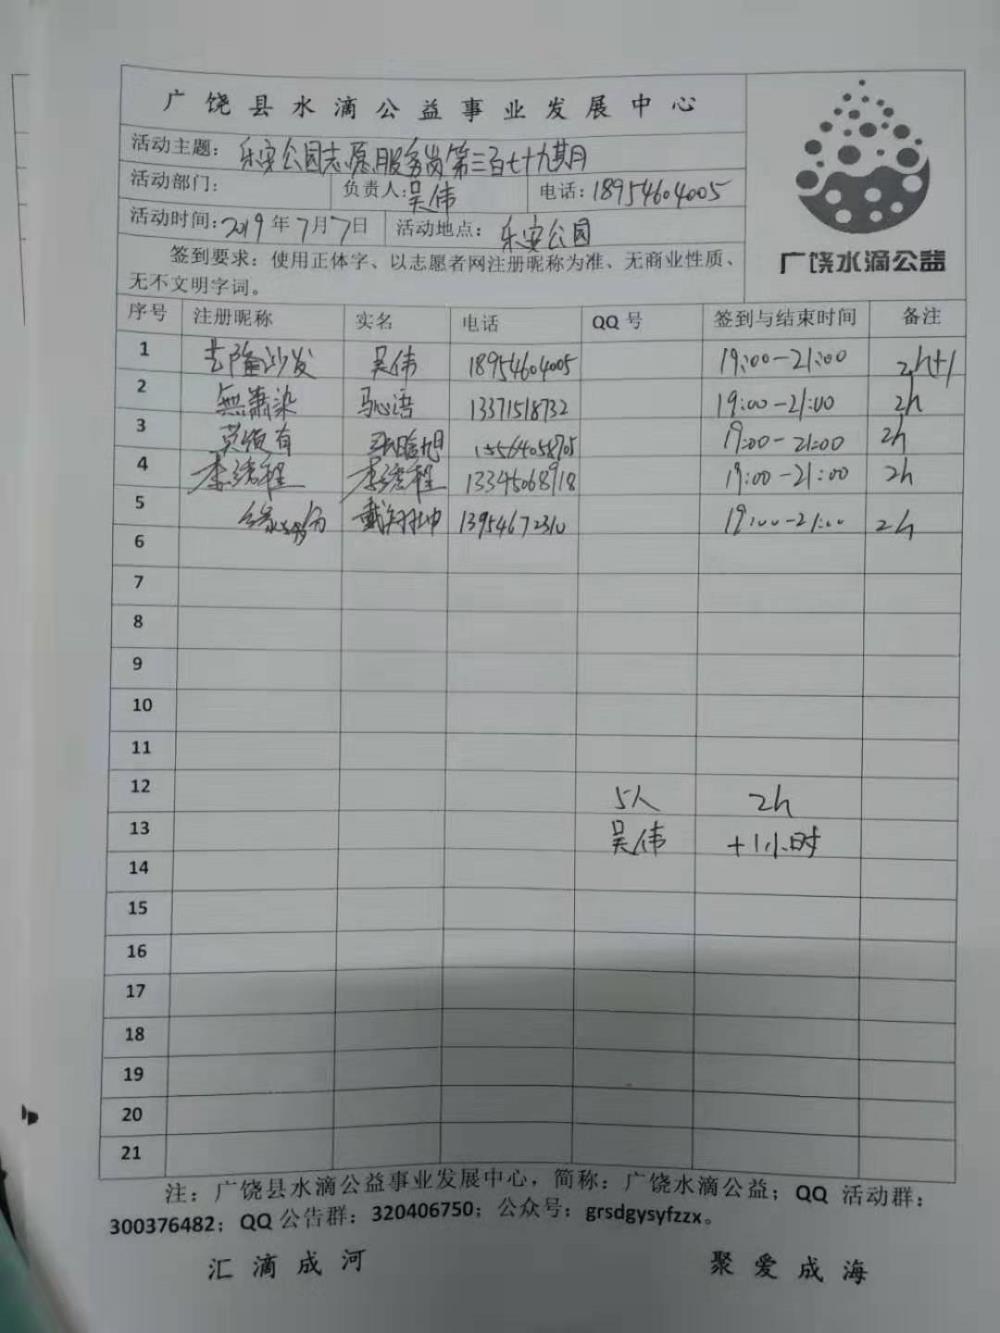 广饶县水滴公益事业发展中心
活动主题: 乐安公园志愿服务岗第三百七十九期
活动部门: 负责人:吴伟 电话:18954604005
活动时间:2019年7月7日 活动地点: 乐安公园
签到要求: 使用正体字、以志愿者网注册昵称为准、无商业性质、
无不文明字词。
广饶水滴公益
序号 注册昵称 实名 电话 QQ号 签到与结束时间 备注
1 吴伟 18954604005 19:00-21:00 2h+1
2 無萧染 13371518732 19:00-21:00 2h
3 19:00-21:00 2h
4 13345068918 19:00-21:00 2h
5 戴 13954672310 19:00-21:00 2h
6
7
8
9
10
11
12 5人 2h
13 吴伟 +1小时
14
15
16
17
18
19
20
21
注: 广饶县水滴公益事业发展中心, 简称: 广饶水滴公益; QQ 活动群:
300376482; QQ公告群: 320406750; 公众号: grsdgysyfzzx。
汇滴成河 聚爱成海